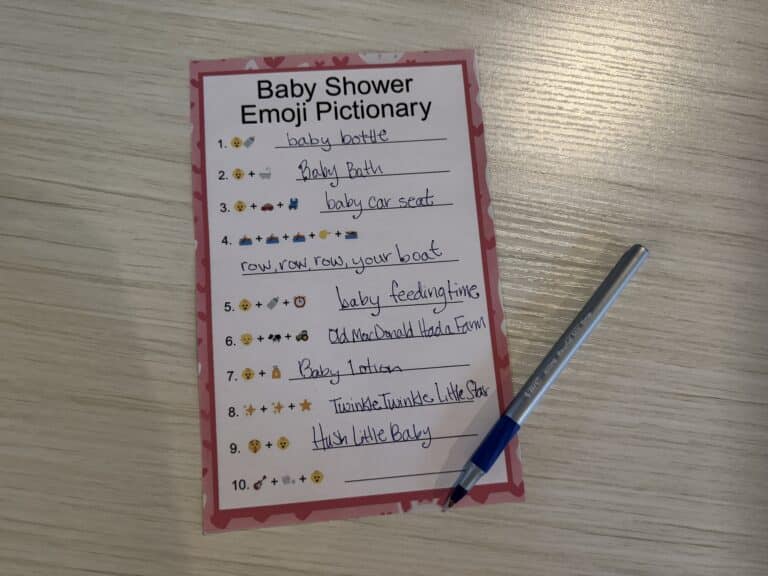 Baby Shower
Emoji Pictionary
1. baby bottle
2. Baby Bath
3. baby car seat
4.
row, row, row, your boat
5. baby feeding time
6. Old MacDonald Had a Farm
7. Baby lotion
8. Twinkle Twinkle Little Star
9. Hush Little Baby
10.